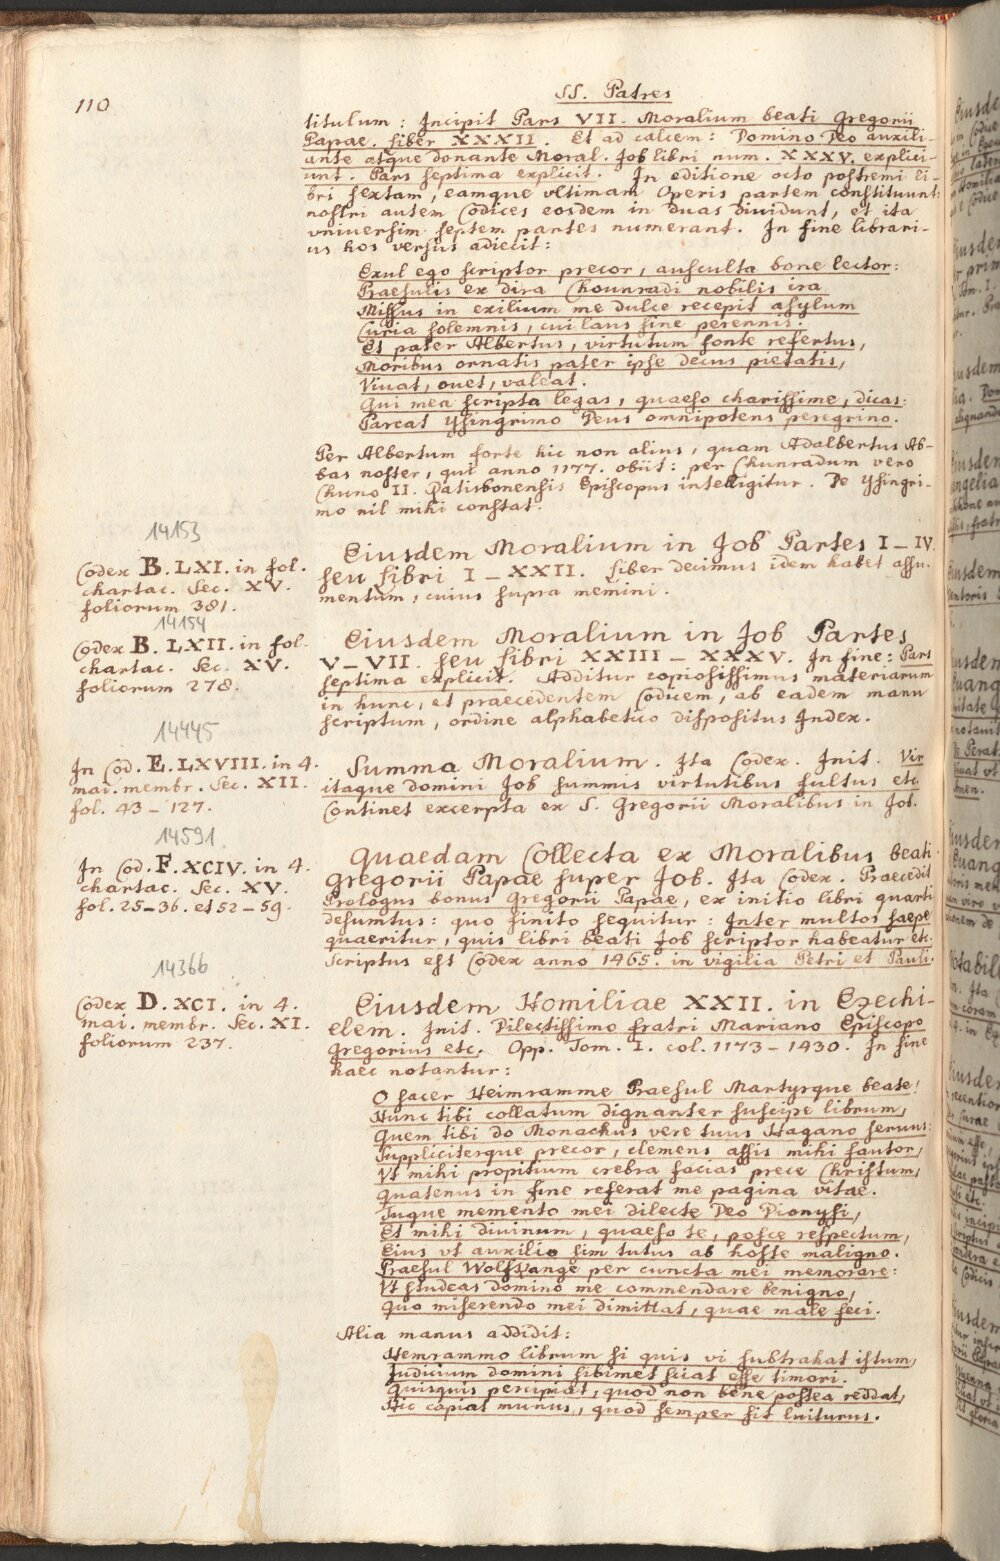 110
SS. Patres
titulum: Incipit Pars VII. Moralium beati Gregorii
Papae. Liber XXXII. Et ad calcem: Domino Deo auxili-
ante atque donante Moral. Job libri num. XXXV. explici-
unt. Pars septima explicit. In editione octo postremi li-
bri sextam, eamque vltimam Operis partem constituunt:
nostri autem Codices eosdem in duas diuidunt, et ita
vniuersim septem partes numerant. In fine librari-
us hos versus adiecit:
Exul ego scriptor precor, ausculta bone lector:
Praesulis ex dira Chounradi nobilis ira
Missus in exilium me dulce recepit asylum
Curia solemnis, cui laus sine perennis.
Et pater Albertus, virtutum fonte refertus,
Moribus ornatis pater ipse decus pietatis,
Viuat, ouet, valeat.
Qui mea scripta legas, quaeso charissime, dicas:
Parcat Ysingrimo Deus omnipotens peregrino.
Per Albertum forte hic non alius, quam Adalbertus Ab-
bas noster, qui anno 1177. obiit: per Chunradum vero
Chuno II. Ratisbonensis Episcopus intelligitur. De Ysingri-
mo nil mihi constat.
14153
Codex B. LXI. in fol.
chartac. Sec. XV.
foliorum 381.
Eiusdem Moralium in Job Partes I-IV.
seu Libri I-XXII. Liber decimus idem habet assu-
mentum, cuius supra memini.
14154
Codex B. LXII. in fol.
chartac. Sec. XV.
foliorum 278.
Eiusdem Moralium in Job Partes
V-VII. seu Libri XXIII-XXXV. In fine: Pars
septima explicit. Additur copiosissimus materiarum
in hunc, et praecedentem Codicem, ab eadem manu
scriptum, ordine alphabetico dispositus Index.
14445
In Cod. E. LXVIII. in 4.
mai. membr. Sec. XII.
fol. 43-127.
Summa Moralium. Ita Codex. Init. Vir
itaque domini Job summis virtutibus fultus etc.
Continet excerpta ex S. Gregorii Moralibus in Job.
14591
In Cod. F. XCIV. in 4.
chartac. Sec. XV.
fol. 25-36. et 52-59.
Quaedam Collecta ex Moralibus beati
Gregorii Papae super Job. Ita Codex. Praecedit
Prologus bonus Gregorii Papae, ex initio libri quarti
desumtus: quo finito sequitur: Inter multos saepe
quaeritur, quis libri beati Job scriptor habeatur etc.
Scriptus est Codex anno 1465. in vigilia Petri et Pauli.
14366
Codex D. XCI. in 4.
mai. membr. Sec. XI.
foliorum 237.
Eiusdem Homiliae XXII. in Ezechi-
elem. Init. Dilectissimo fratri Mariano Episcopo
Gregorius etc. Opp. Tom. I. col. 1173-1430. In fine
haec notantur:
O sacer Heimramme Praesul Martyrque beate!
Hunc tibi collatum dignanter suscipe librum,
Quem tibi do Monachus vere tuus Hagano seruus:
Suppliciterque precor, clemens assis mihi fautor,
Vt mihi propitium crebra facias prece Christum,
Quatenus in fine referat me pagina vitae.
Tuque memento mei dilecte Deo Dionysi,
Et mihi diuinum, quaeso te, posce respectum,
Eius vt auxilio sim tutus ab hoste maligno.
Praesul Wolfkange per cuncta mei memorare:
Vt studeas domino me commendare benigno,
Quo miserendo mei dimittat, quae male feci.
Alia manus addidit:
Hemrammo librum si quis vi subtrahat istum,
Judicium domini sibimet sciat esse timori.
Quisquis percipiat, quod non bene postea reddat,
Hic capiat munus, quod semper sit luiturus.